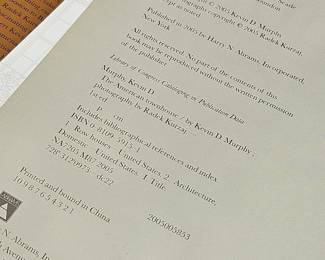 © 2005 Kevin D. Murphy
copyright © 2005 Radek Kurzaj,
as noted
Published in 2005 by Harry N. Abrams, Incorporated,
New York
All rights reserved. No part of the contents of this
book may be reproduced without the written permission
of the publisher
Library of Congress Cataloging-in-Publication Data
Murphy, Kevin D.
The American townhouse / by Kevin D. Murphy ;
photography by Radek Kurzaj.—
1st ed.
p. cm.
Includes bibliographical references and index.
ISBN 0-8109-5915-1
1. Row houses—United States. 2. Architecture,
Domestic—United States. I. Title.
NA7520.M87 2005
728'.3120973—dc22
2005005853
Printed and bound in China
10 9 8 7 6 5 4 3 2 1
N. Abrams, In
Avenue